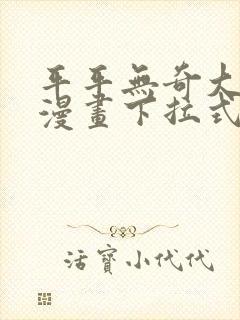 平平無奇大
漫畫下拉式
活寶小代代